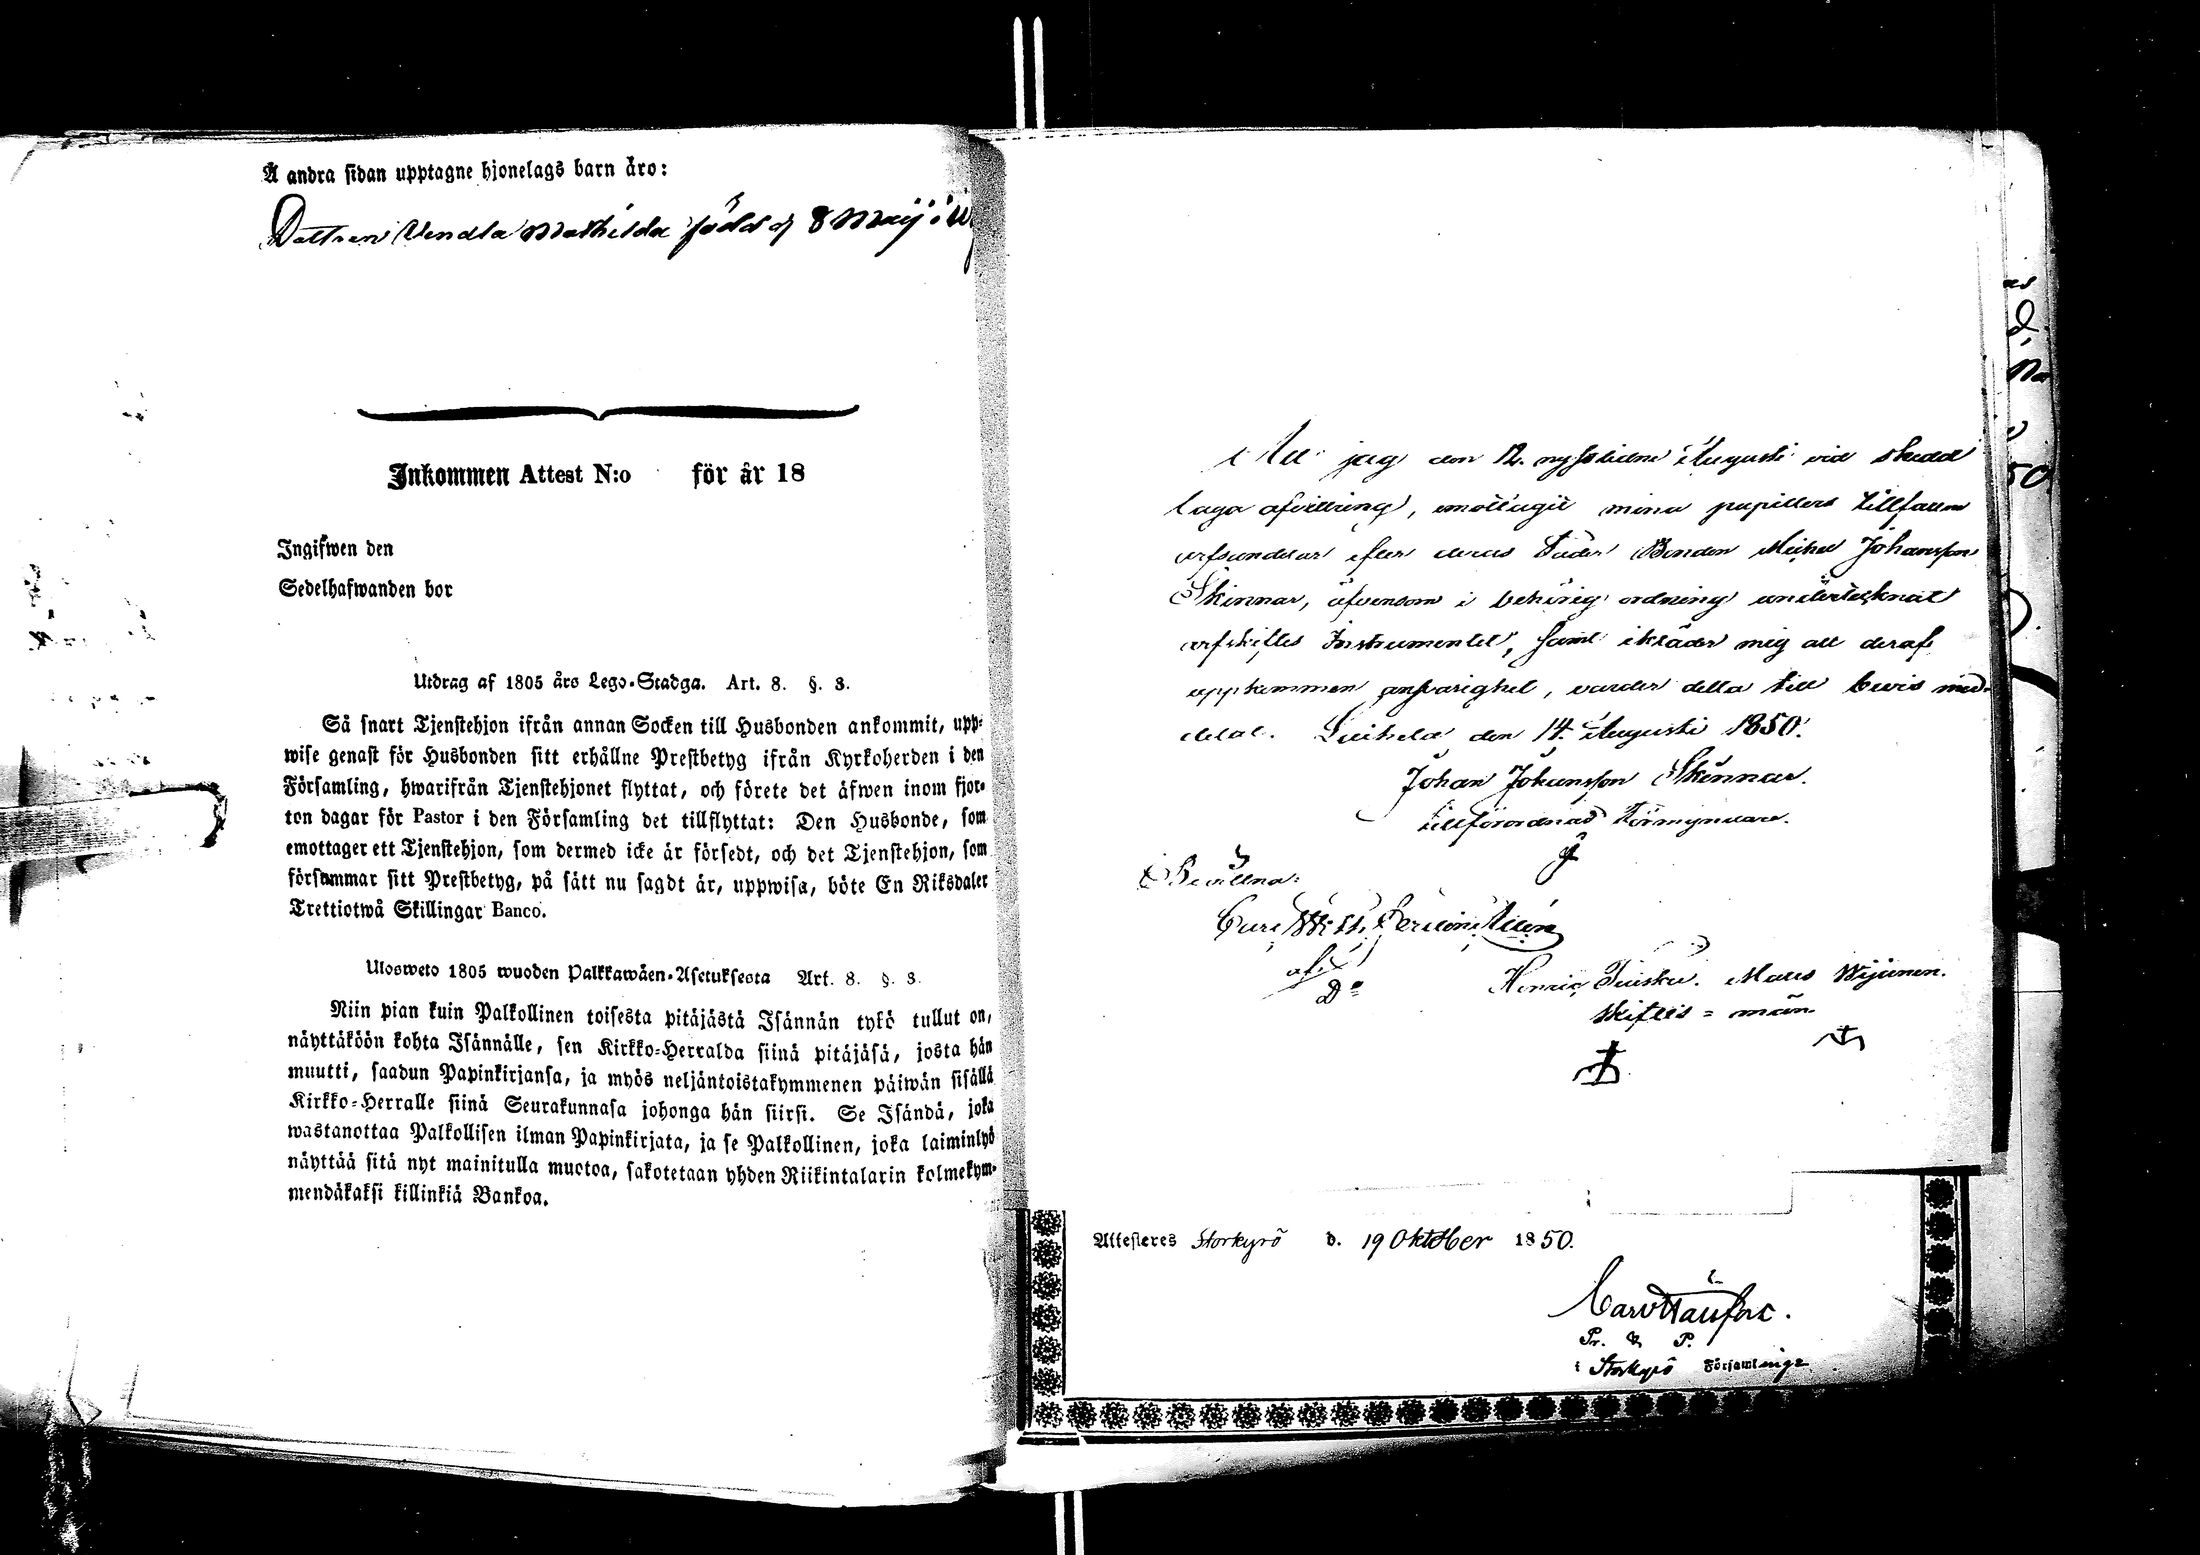 Å andra sidan upptagne hjonelags barn äro:
Dottren Vendla Mathilda född d 8 Maij i
Inkommen Attest N:o för år 18
Ingifwen den
Sedelhafwanden bor
Utdrag af 1805 års Lego-Stadga. Art. 8. §. 3.
Så snart Tjenstehjon ifrån annan Socken till Husbonden ankommit, upp-
wise genast för Husbonden sitt erhållne Prestbetyg ifrån Kyrkoherden i den
Församling, hwarifrån Tjenstehjonet flyttat, och förete det äfwen inom fjor-
ton dagar för Pastor i den Församling det tillflyttat: Den Husbonde, som
emottager ett Tjenstehjon, som dermed icke är försedt, och det Tjenstehjon, som
försummar sitt Prestbetyg, på sätt nu sagdt är, uppwisa, böte En Riksdaler
Trettiotwå Skillingar Banco.
Ulosweto 1805 wuoden Palkkawäen-Asetuksesta Art. 8. §. 3.
Niin pian kuin Palkollinen toisesta pitäjästä Isännän tykö tullut on,
näyttäköön kohta Isännälle, sen Kirkko-Herralda siinä pitäjäsä, josta hän
muutti, saadun Papinkirjansa, ja myös neljäntoistakymmenen päiwän sisällä
Kirkko-Herralle siinä Seurakunnasa johonga hän siirsi. Se Isändä, joka
wastanottaa Palkollisen ilman Papinkirjata, ja se Palkollinen, joka laiminlyö
näyttää sitä nyt mainitulla muotoa, sakotetaan yhden Riikintalarin kolmekym-
mendäkaksi killinkiä Bankoa.
Att jag den 12. nyssledne Augusti vid skedd
laga afvittring, emottagit mina pupillers tillfallne
arfsandelar efter deras Fader Bonden Michel Johansson
Skinnar, äfvensom i behörig ordning undertecknat
arfskiftes Instrumentet, samt ikläder mig all deraf
uppkommen ansvarighet, varder detta till bevis med-
delat. den 14 Augusti 1850.
Johan Johansson Skinnar.
tillförordnad Förmyndare.
Bevittna:
Henric Mats
skiftes = män
Attesteres Storkyrö d. 19 Oktober 1850.
Pr. & P.
i Storkyrö Församlinge